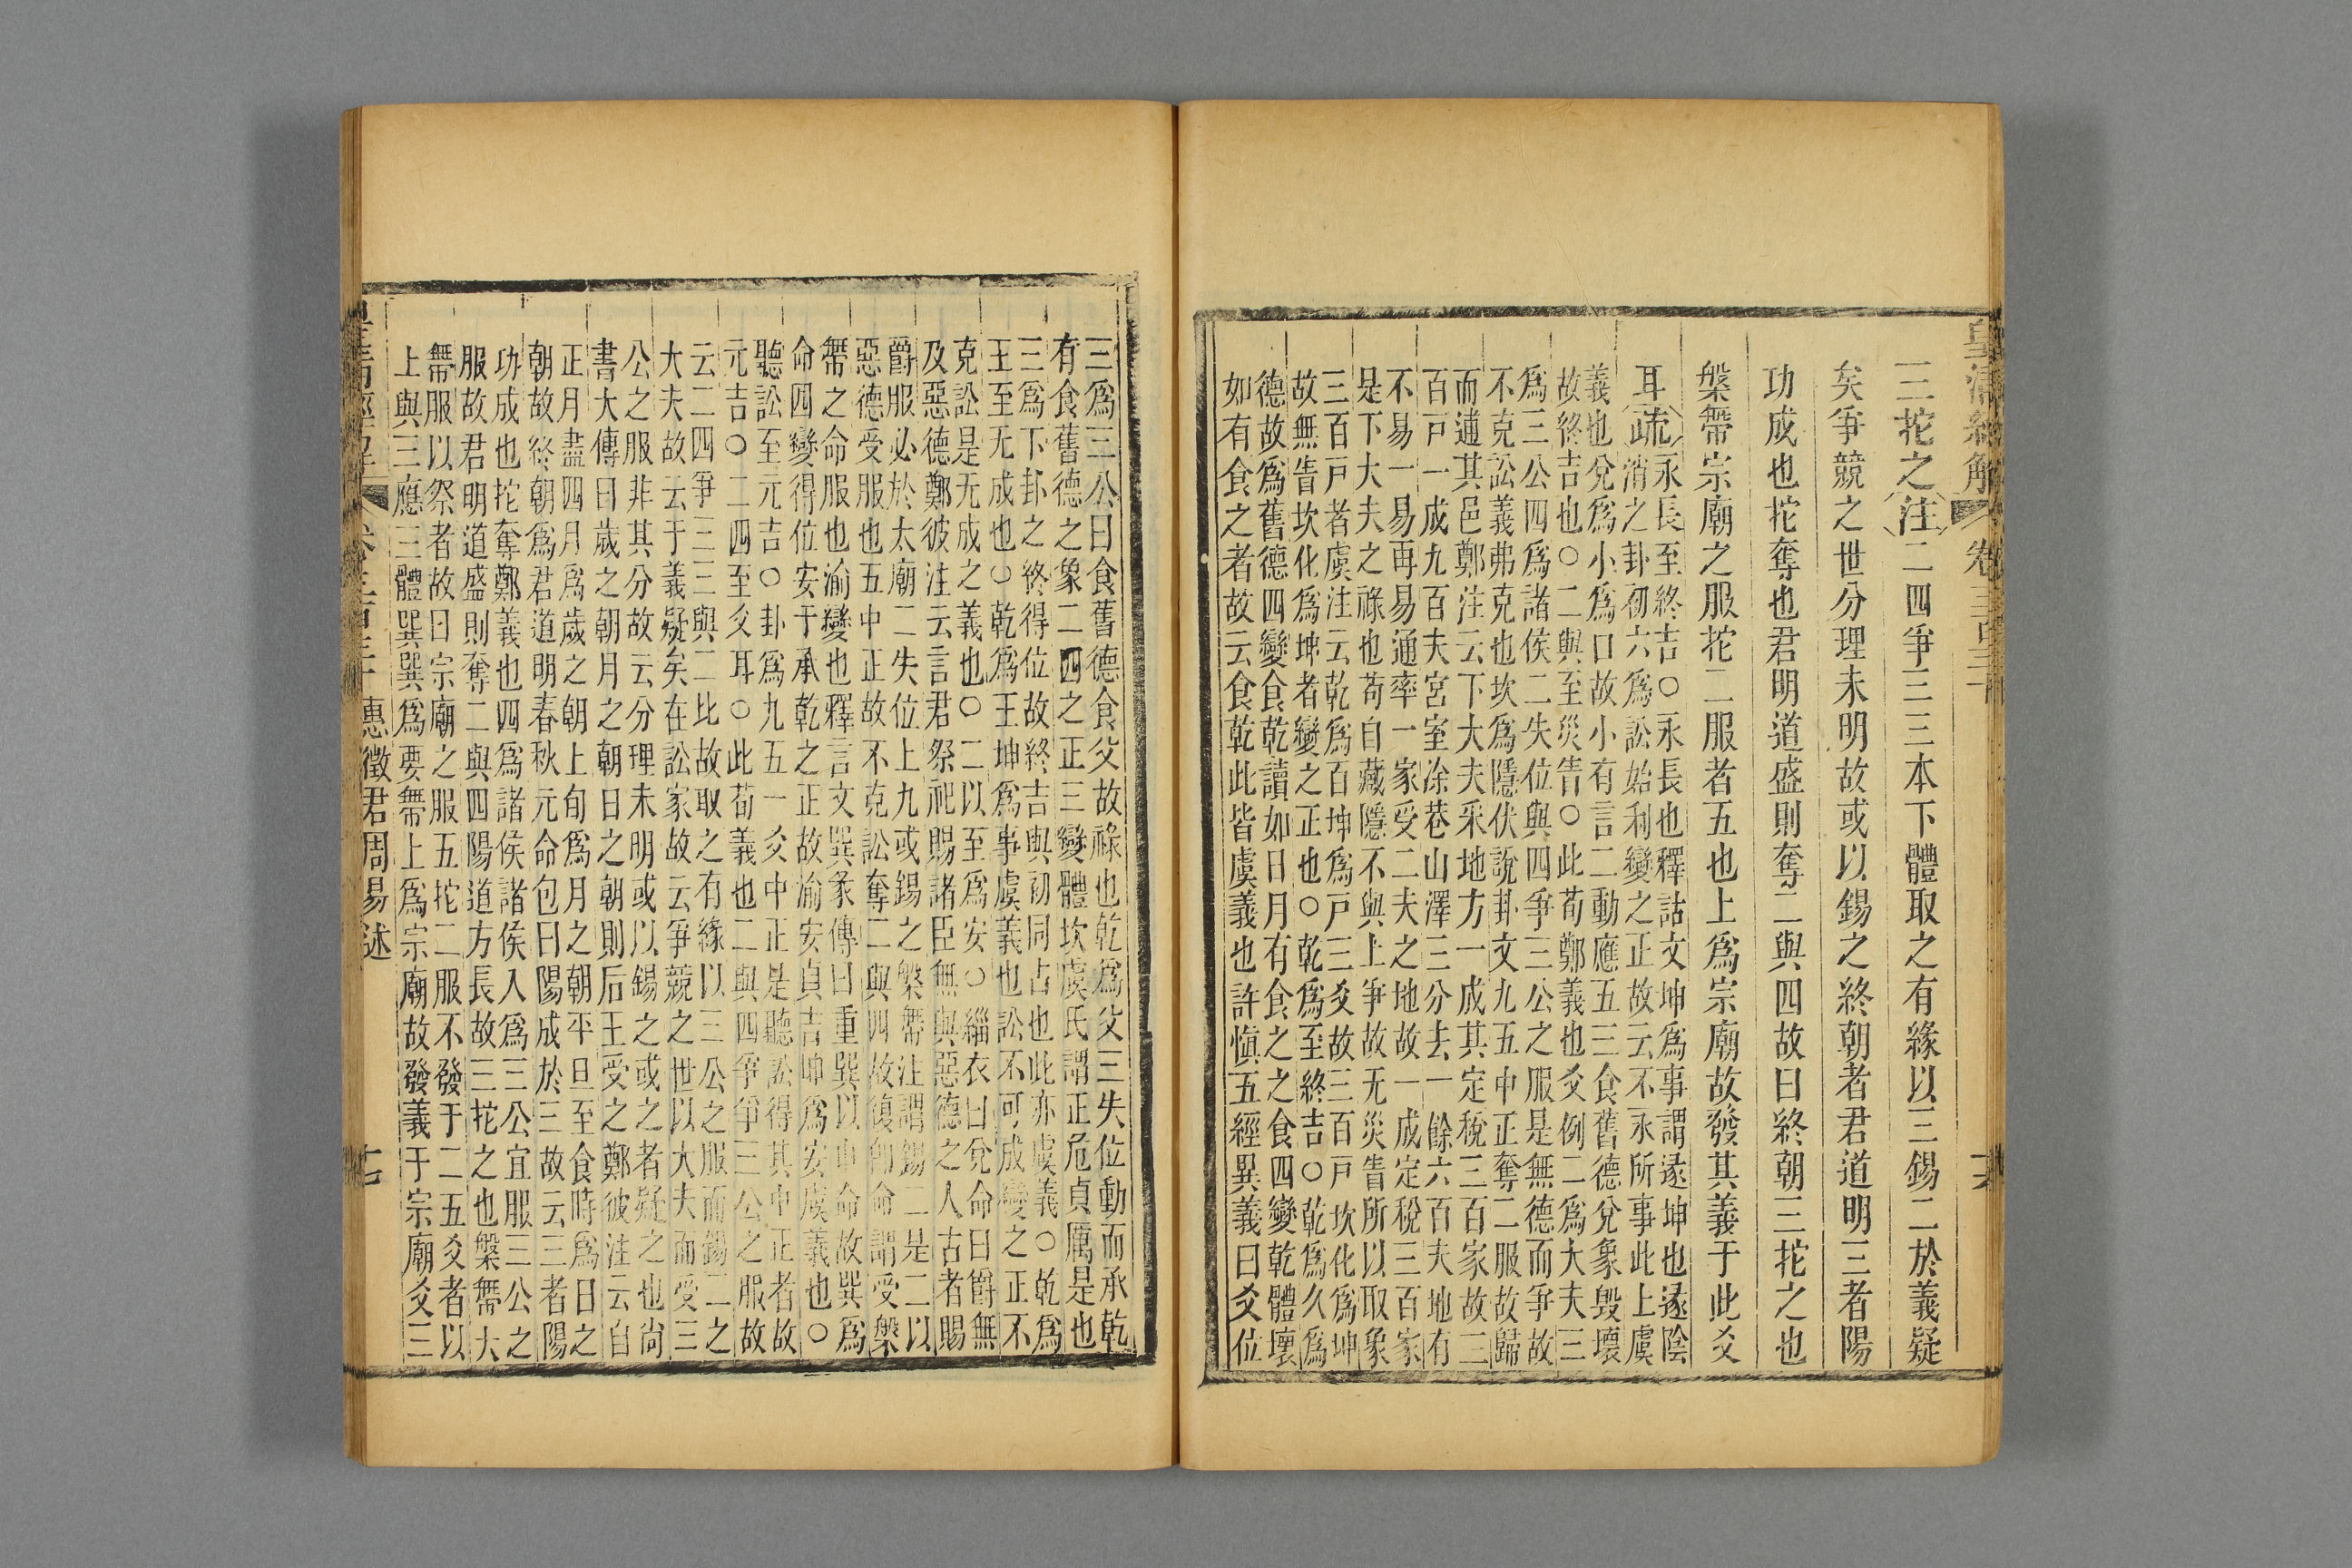 皇清經解 卷三百三十 六
三拕之注二四爭三三本下體取之有緣以三錫二於義疑
矣爭競之世分理未明故或以錫之終朝者君道明三者陽
功成也拕奪也君明道盛則奪二與四故曰終朝三拕之也
槃帶宗廟之服拕二服者五也上爲宗廟故發其義于此爻
耳疏
永長至終吉○永長也釋詁文坤爲事謂遂坤也遂陰
消之卦初六爲訟始利變之正故云不永所事此上虞
義也兌爲小爲口故小有言二動應五三食舊德兌象毀壞
故終吉也○二與至災眚○此荀鄭義也爻例二爲大夫三
爲三公四爲諸侯二失位與四爭三公之服是無德而爭故
不克訟義弗克也坎爲隱伏說卦文九五中正奪二服故歸
而逋其邑鄭注云下大夫采地方一成其定稅三百家故三
百戸一成九百夫宮室涂巷山澤三分去一餘六百夫地有
不易一易再易通率一家受二夫之地故一成定稅三百家
是下大夫之祿也苟自藏隱不與上爭故无災眚所以取象
三百戸者虞注云乾爲百坤爲戸三爻故三百戸坎化爲坤
故無眚坎化爲坤者變之正也○乾爲至終吉○乾爲久爲
德故爲舊德四變食乾讀如日月有食之之食四變乾體壞
如有食之者故云食乾此皆虞義也許愼五經異義曰爻位
三爲三公曰食舊德食父故祿也乾爲父三失位動而承乾
有食舊德之象二四之正三變體坎虞氏謂正危貞厲是也
三爲下卦之終得位故終吉與初同占也此亦虞義○乾爲
王至无成也○乾爲王坤爲事虞義也訟不可成變之正不
克訟是无成之義也○二以至爲安○緇衣曰兌命曰爵無
及惡德鄭彼注云言君祭祀賜諸臣無與惡德之人古者賜
爵服必於太廟二失位上九或錫之槃帶注謂錫二是二以
惡德受服也五中正故不克訟奪二與四故復卽命謂受槃
帶之命服也渝變也釋言文巽彖傳曰重巽以申命故巽爲
命四變得位安于承乾之正故渝安貞吉坤爲安虞義也○
聽訟至元吉○卦爲九五一爻中正是聽訟得其中正者故
元吉○二四至爻耳○此荀義也二與四爭爭三公之服故
云二四爭三三與二比故取之有緣以三公之服而錫二之
大夫故云于義疑矣在訟家故云爭競之世以大夫而受三
公之服非其分故云分理未明或以錫之或之者疑之也尚
書大傳曰歲之朝月之朝日之朝則后王受之鄭彼注云自
正月盡四月爲歲之朝上旬爲月之朝平旦至食時爲日之
朝故終朝爲君道明春秋元命包曰陽成於三故云三者陽
功成也拕奪鄭義也四爲諸侯諸侯入爲三公宜服三公之
服故君明道盛則奪二與四陽道方長故三拕之也槃帶大
帶服以祭者故曰宗廟之服五拕二服不發于二五爻者以
上與三應三體巽巽爲要帶上爲宗廟故發義于宗廟爻三
皇清經解 卷三百三十 惠徵君周易述 七